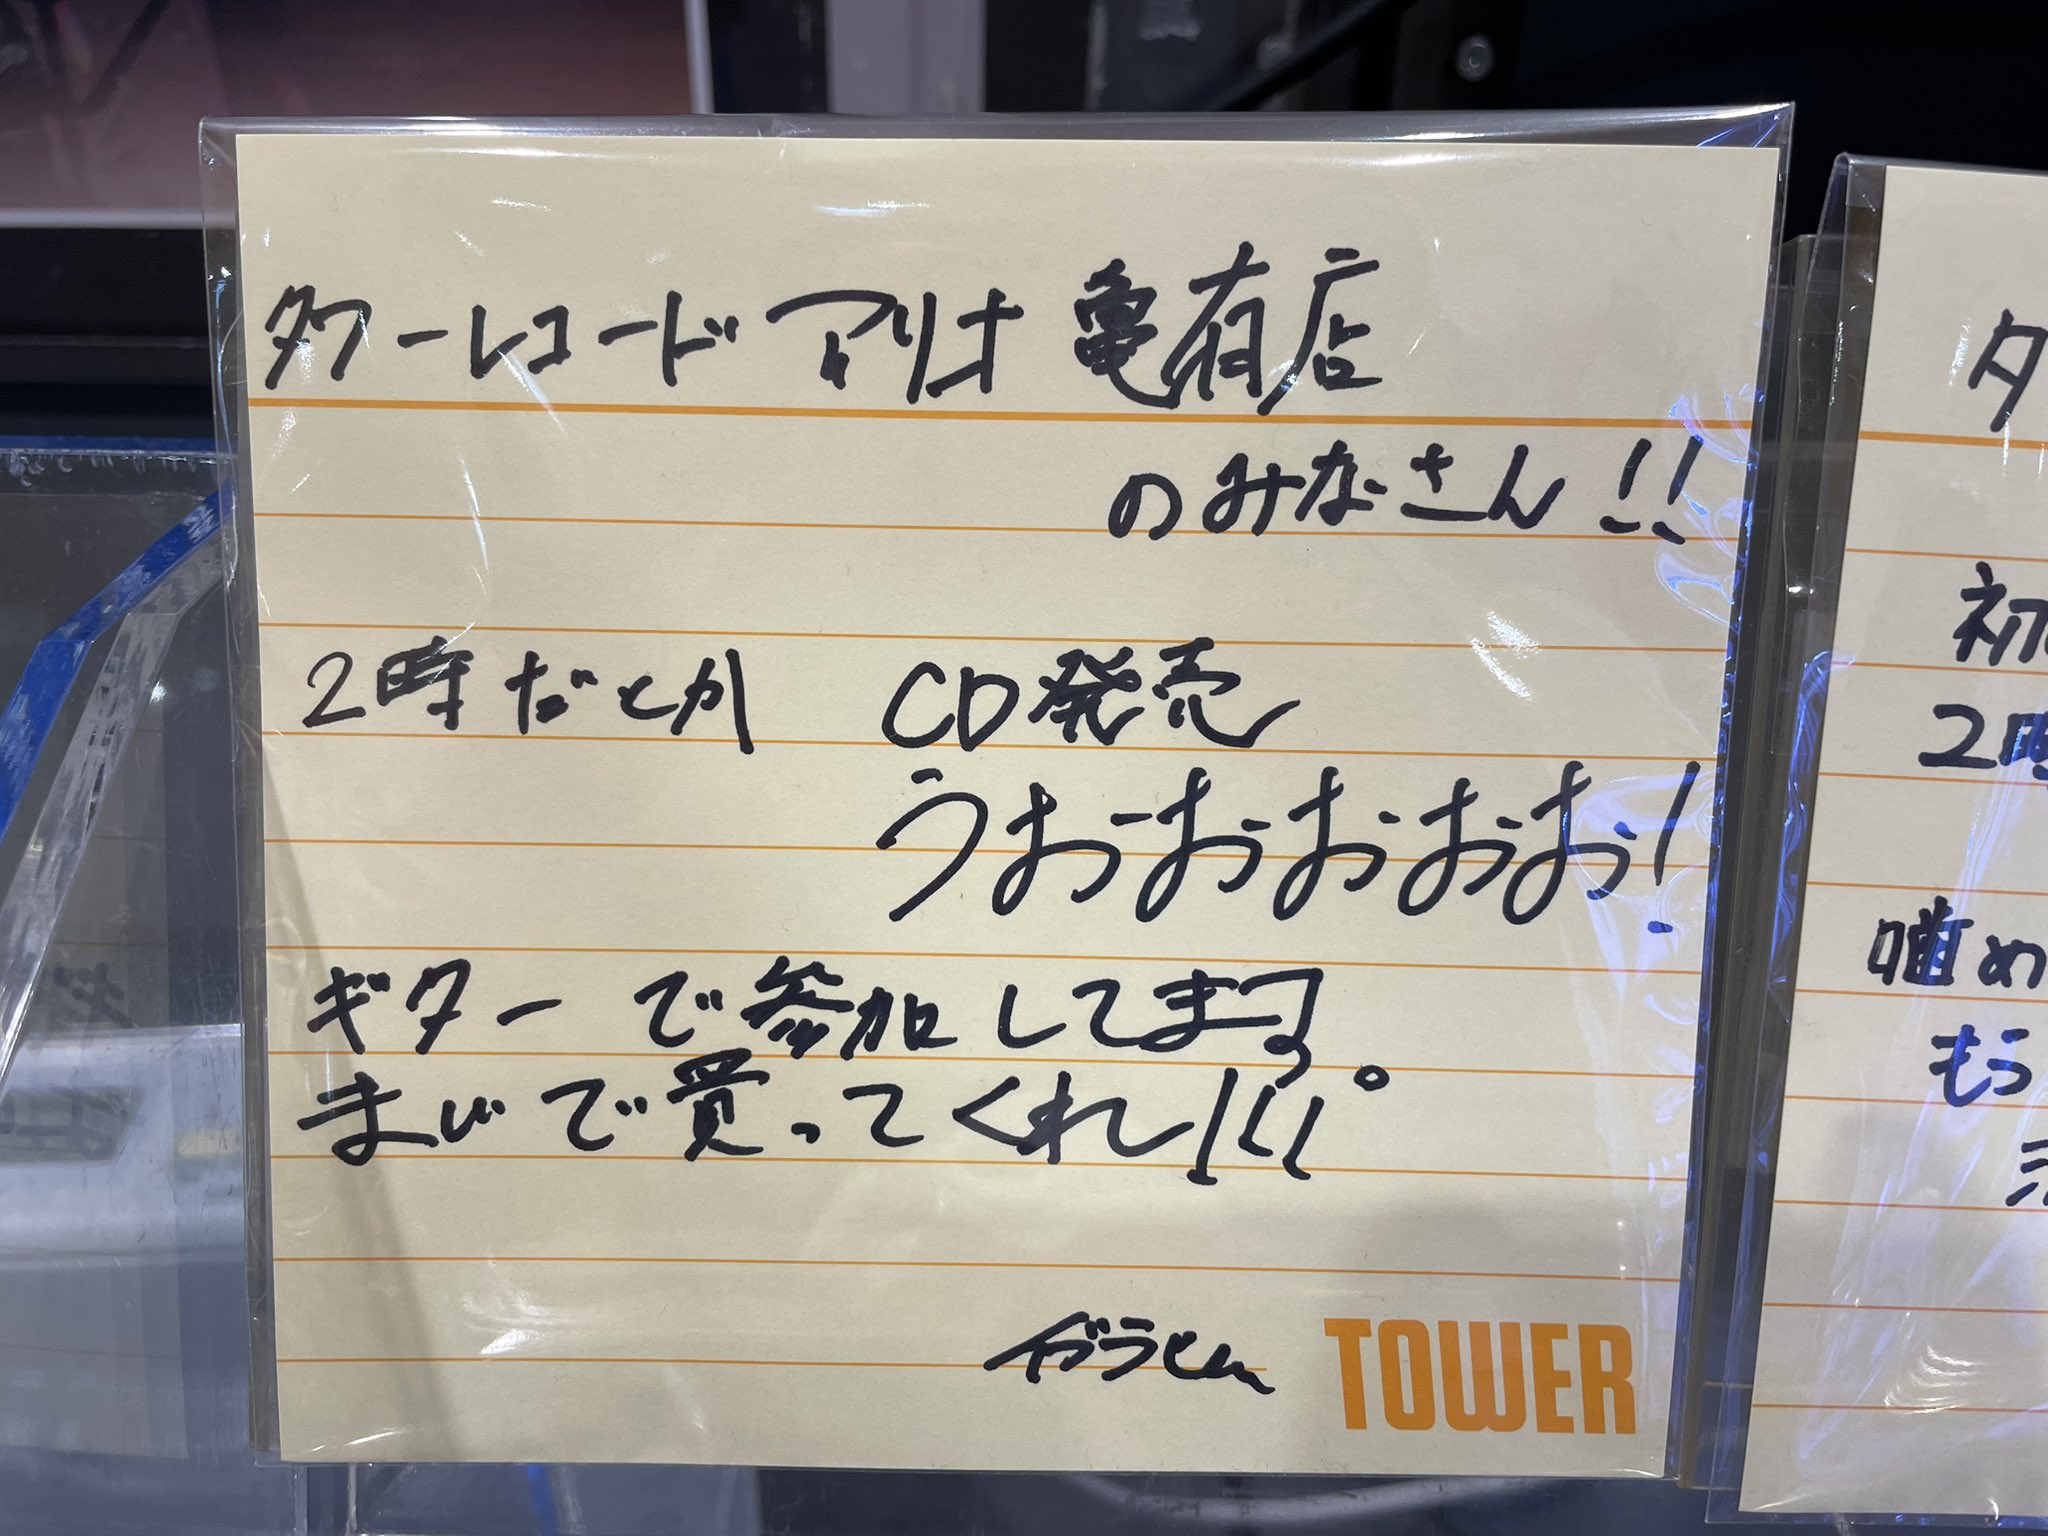 タワーレコード アリオ亀有店
のみなさん!!
2時だとか CD発売
うおーおぉおおぉおぉ!
ギターで参加してます。
まじで買ってくれ!!!
ガラくん
TOWER
タ
初
2時
噛め
もう